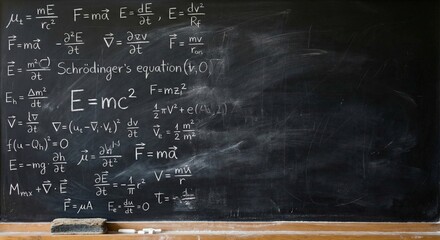 μₜ = mE/rc²   F⃗=ma⃗   E = dE/∂t , E = dv/R_f
F⃗=ma⃗   -∂²E/∂t   ∇⃗ = ∂vv/∂t   F⃗ = mv/r
E⃗ = m²C)/∂t   Schrödinger's equation(v,0)
E_h = Δm²/dt   E=mc²   F=mz²
½πV²+e
V⃗ = /∂t   ∇=(uₜ-V₁·Vₜ)²   dv/∂t   V⃗_ε = ½ m²/m²
f(u-Q_h)²=0   F⃗=ma⃗
E=-mg·∂h/∂t   V = mv/r
M_mx+∇⃗·E⃗   ∂E⃗/∂t = -1/π r²   T=
F⃗=μA   E_ε = du/dt = 0